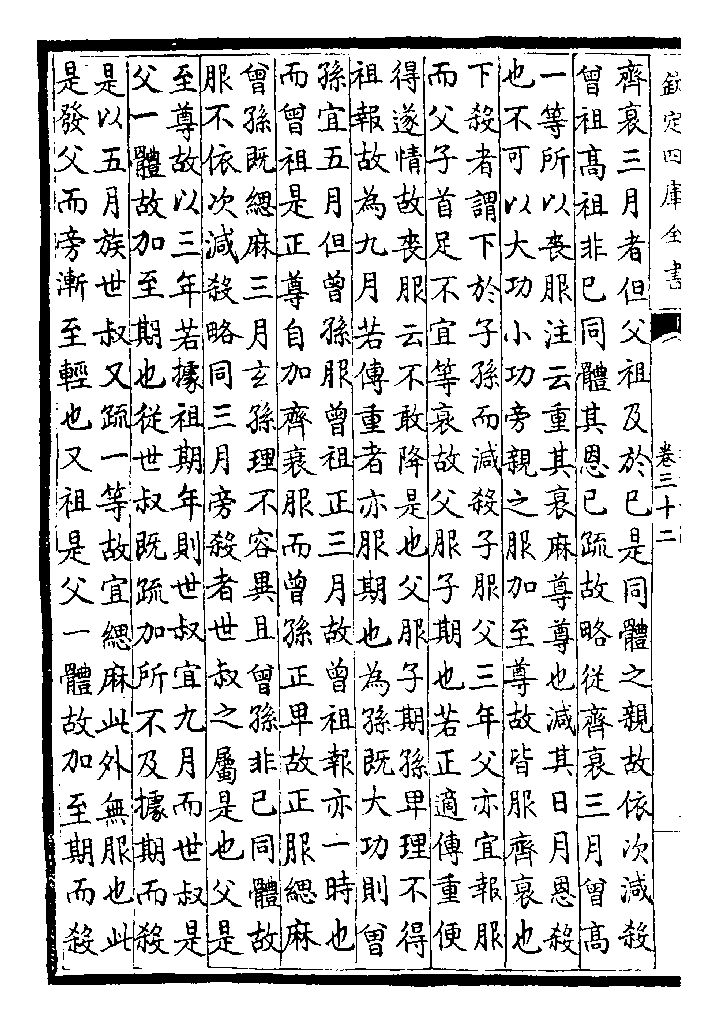 欽定四庫全書
卷三十二
齊衰三月者但父祖及於已是同體之親故依次減殺
曾祖髙祖非已同體其恩已疏故略從齊衰三月曾髙
一等所以喪服注云重其衰麻尊尊也減其日月恩殺
也不可以大功小功旁親之服加至尊故皆服齊衰也
下殺者謂下於子孫而減殺子服父三年父亦宜報服
而父子首足不宜等衰故父服子期也若正適傳重便
得遂情故喪服云不敢降是也父服子期孫卑理不得
祖報故為九月若傳重者亦服期也為孫既大功則曾
孫宜五月但曾孫服曾祖正三月故曾祖報亦一時也
而曾祖是正尊自加齊衰服而曾孫正卑故正服緦麻
曾孫既緦麻三月玄孫理不容異且曾孫非已同體故
服不依次減殺略同三月旁殺者世叔之屬是也父是
至尊故以三年若據祖期年則世叔宜九月而世叔是
父一體故加至期也從世叔既疏加所不及據期而殺
是以五月族世叔又疏一等故宜緦麻此外無服也此
是發父而旁漸至輕也又祖是父一體故加至期而殺